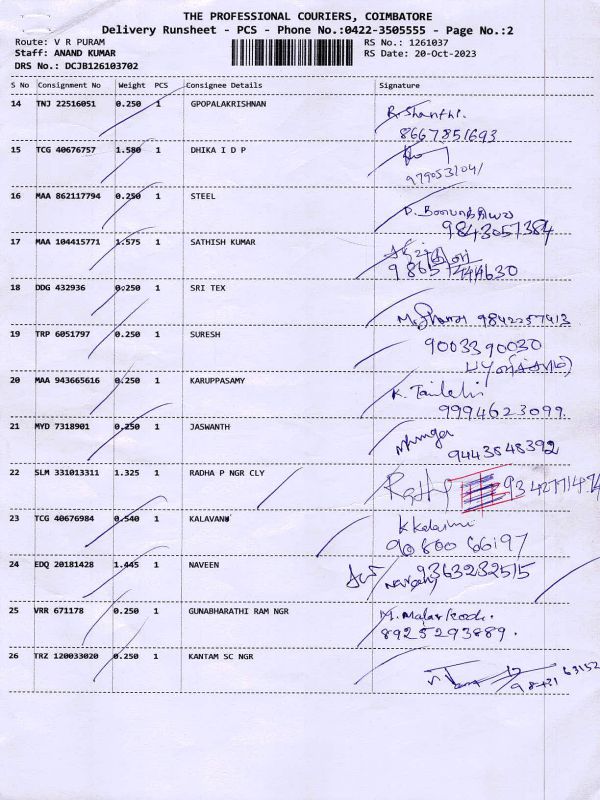 THE PROFESSIONAL COURIERS, COIMBATORE
Delivery Runsheet - PCS - Phone No.:0422-3505555 - Page No.:2
Route: V R PURAM RS No.: 1261037
Staff: ANAND KUMAR RS Date: 20-Oct-2023
DRS No.: DCJB126103702
S No Consignment No Weight PCS Consignee Details Signature
14 TNJ 22516051 0.250 1 GPOPALAKRISHNAN
R. Shanthi.
8667851693
15 TCG 40676757 1.580 1 DHIKA I D P
16 MAA 862117794 0.250 1 STEEL
9843051384
17 MAA 104415771 1.575 1 SATHISH KUMAR
18 DDG 432936 0.250 1 SRI TEX
9842257413
19 TRP 6051797 0.250 1 SURESH
9003390030
20 MAA 943665616 0.250 1 KARUPPASAMY
9994623099.
21 MYD 7318901 0.250 1 JASWANTH
9443548392
22 SLM 331013311 1.325 1 RADHA P NGR CLY
23 TCG 40676984 0.540 1 KALAVANI
90800 66197
24 EDQ 20181428 1.445 1 NAVEEN
Naveen 9363232515
25 VRR 671178 0.250 1 GUNABHARATHI RAM NGR
M. Malarkodi.
8925293889.
26 TRZ 120033020 0.250 1 KANTAM SC NGR